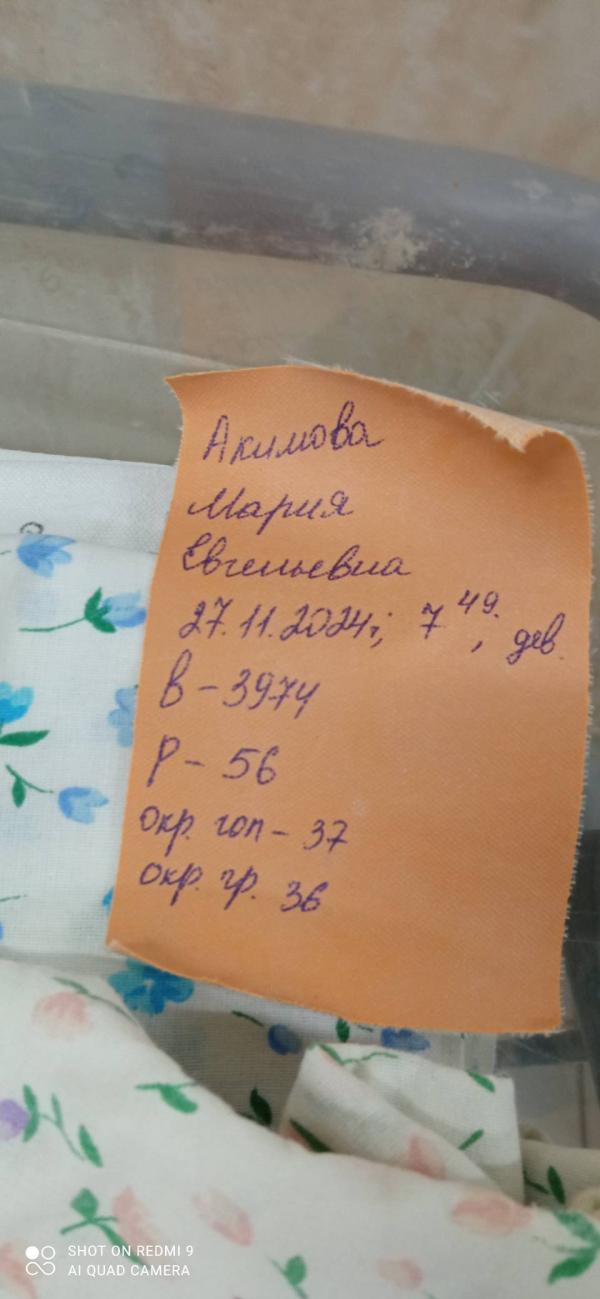 Акимова
Мария
Евгеньевна
27.11.2024г; 7 49. , дев.
В - 3974
Р - 56
окр. гол - 37
окр. гр. 36
SHOT ON REDMI 9
AI QUAD CAMERA